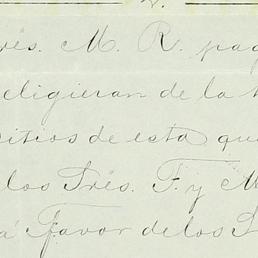 rés. M. R. pag
eligieran de la
sitios de esta que
los Srés. F. y M
á Favor de los S